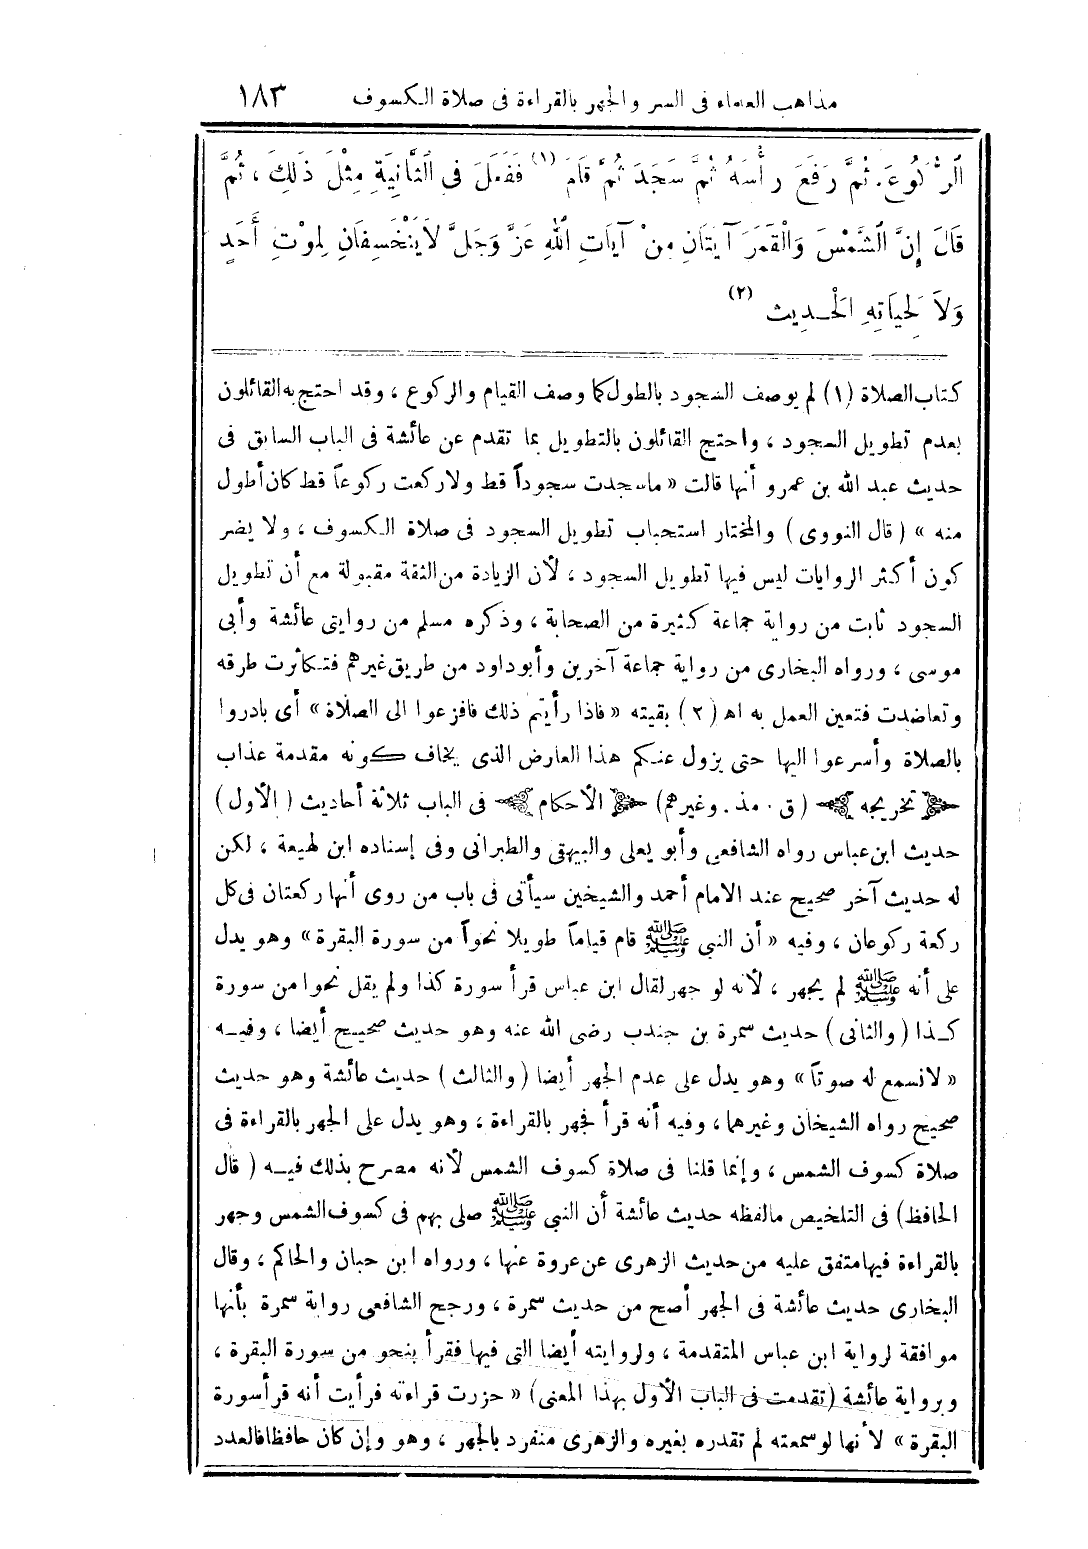 مذاهب العلماء فى السر والجهر بالقراءة فى صلاة الكسوف ١٨٣
الرُّكُوعَ. ثُمَّ رَفَعَ رَأْسَهُ ثُمَّ سَجَدَ ثُمَّ قَامَ (١) فَفَعَلَ فِى الثَّانِيَةِ مِثْلَ ذَلِكَ ، ثُمَّ
قَالَ إِنَّ الشَّمْسَ وَالْقَمَرَ آيَتَانِ مِنْ آيَاتِ اللهِ عَزَّ وَجَلَّ لاَيَنْخَسِفَانِ لِمَوْتِ أَحَدٍ
وَلاَ لِحَيَاتِهِ الْحَـدِيث (٢)
كتاب الصلاة (١) لم يوصف السجود بالطول كما وصف القيام والركوع ، وقد احتج به القائلون
بعدم تطويل السجود ، واحتج القائلون بالتطويل بما تقدم عن عائشة فى الباب السابق فى
حديث عبد الله بن عمرو أنها قالت « ماسجدت سجوداً قط ولاركعت ركوعاً قط كان أطول
منه » ( قال النووى ) والمختار استحباب تطويل السجود فى صلاة الكسوف ، ولا يضر
كون أكثر الروايات ليس فيها تطويل السجود ، لأن الزيادة من الثقة مقبولة مع أن تطويل
السجود ثابت من رواية جماعة كثيرة من الصحابة ، وذكره مسلم من روايتى عائشة وأبى
موسى ، ورواه البخارى من رواية جماعة آخرين وأبوداود من طريق غيرهم فتكاثرت طرقه
وتعاضدت فتعين العمل به اهـ (٢) بقيته « فاذا رأيتم ذلك فافزعوا الى الصلاة » أى بادروا
بالصلاة وأسرعوا اليها حتى يزول عنكم هذا العارض الذى يخاف كونه مقدمة عذاب
تخريجه (ق . مذ . وغيرهم) الأحكام فى الباب ثلاثة أحاديث (الأول)
حديث ابن عباس رواه الشافعى وأبو يعلى والبيهقى والطبرانى وفى إسناده ابن لهيعة ، لكن
له حديث آخر صحيح عند الامام أحمد والشيخين سيأتى فى باب من روى أنها ركعتان فى كل
ركعة ركوعان ، وفيه « أن النبى ﷺ قام قياماً طويلا نحواً من سورة البقرة » وهو يدل
على أنه ﷺ لم يجهر ، لأنه لو جهر لقال ابن عباس قرأ سورة كذا ولم يقل نحوا من سورة
كـذا (والثانى) حديث سمرة بن جندب رضى الله عنه وهو حديث صحيح أيضا ، وفيـه
« لانسمع له صوتاً » وهو يدل على عدم الجهر أيضا (والثالث) حديث عائشة وهو حديث
صحيح رواه الشيخان وغيرهما ، وفيه أنه قرأ فجهر بالقراءة ، وهو يدل على الجهر بالقراءة فى
صلاة كسوف الشمس ، وإنما قلنا فى صلاة كسوف الشمس لأنه مصرح بذلك فيـه ( قال
الحافظ) فى التلخيص مالفظه حديث عائشة أن النبى ﷺ صلى بهم فى كسوف الشمس وجهر
بالقراءة فيها متفق عليه من حديث الزهرى عن عروة عنها ، ورواه ابن حبان والحاكم ، وقال
البخارى حديث عائشة فى الجهر أصح من حديث سمرة ، ورجح الشافعى رواية سمرة بأنها
موافقة لرواية ابن عباس المتقدمة ، ولروايته أيضا التى فيها فقرأ بنحو من سورة البقرة ،
وبرواية عائشة (تقدمت فى الباب الأول بهذا المعنى) « حزرت قراءته فرأيت أنه قرأ سورة
البقرة » لأنها لو سمعته لم تقدره بغيره والزهرى منفرد بالجهر ، وهو وإن كان حافظا فالعدد